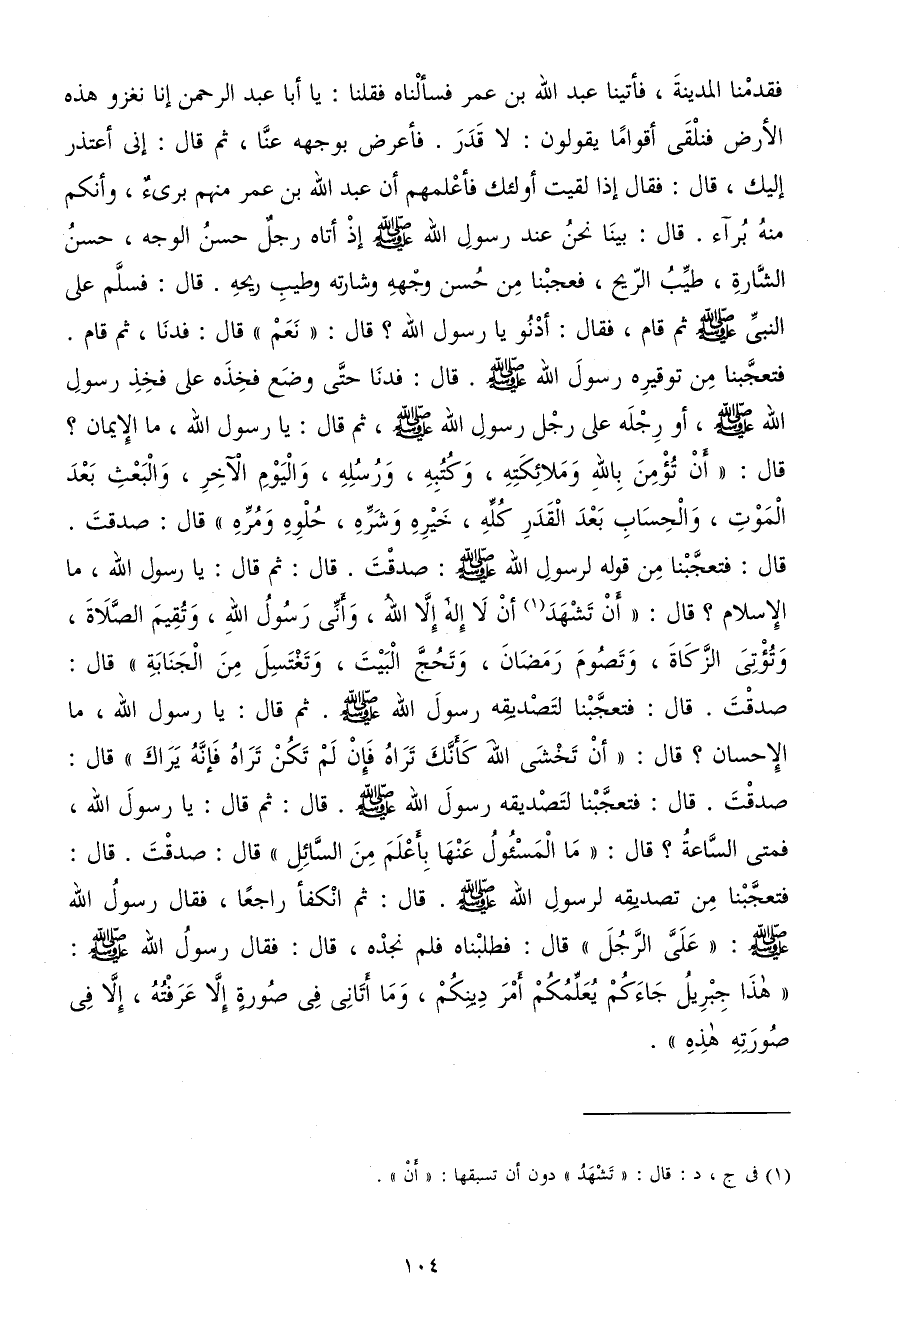 فقدمْنا المدينةَ ، فأتينا عبد الله بن عمر فسألْناه فقلنا : يا أبا عبد الرحمن إنا نغزو هذه
الأرض فنلْقَى أقوامًا يقولون : لا قَدَرَ . فأعرض بوجهه عنَّا ، ثم قال : إنى أعتذر
إليك ، قال : فقال إذا لقيت أولئك فأعْلمهم أن عبد الله بن عمر منهم برىءٌ ، وأنكم
منهُ بُرآء . قال : بينَا نحنُ عند رسولِ الله ﷺ إذْ أتاه رجلٌ حسنُ الوجه ، حسنُ
الشَّارةِ ، طيِّبُ الرّيح ، فعجبْنا مِن حُسن وجْههِ وشارته وطيبِ ريحهِ . قال : فسلَّم على
النبىِّ ﷺ ثم قام ، فقال : أدْنُو يا رسول الله ؟ قال : « نَعَمْ » قال : فدنَا ، ثم قام .
فتعجَّبنا مِن توقيره رسولَ الله ﷺ . قال : فدنَا حتَّى وضَع فخِذَه على فخِذِ رسولِ
الله ﷺ ، أو رِجْلَه على رجْل رسولِ الله ﷺ ، ثم قال : يا رسول الله ، ما الإيمان ؟
قال : « أَنْ تُؤْمِنَ بِاللهِ وَمَلائِكَتِهِ ، وَكُتُبِهِ ، وَرُسُلِهِ ، وَالْيَوْمِ الْآخِرِ ، وَالْبَعْثِ بَعْدَ
الْمَوْتِ ، وَالْحِسَابِ بَعْدَ الْقَدَرِ كُلِّهِ ، خَيْرِهِ وَشَرِّهِ ، حُلْوِهِ وَمُرِّهِ » قال : صدقتَ .
قال : فتعجَّبْنا مِن قوله لرسولِ الله ﷺ : صدقْتَ . قال : ثم قال : يا رسول الله ، ما
الإسلام ؟ قال : « أَنْ تَشْهَدَ(١) أنْ لَا إِلهَ إِلَّا اللهُ ، وَأَنِّى رَسُولُ اللهِ ، وَتُقِيمَ الصَّلَاةَ ،
وَتُؤْتِىَ الزَّكَاةَ ، وَتَصُومَ رَمَضَانَ ، وَتَحُجَّ الْبَيْتَ ، وَتَغْتَسِلَ مِنَ الْجَنَابَةِ » قال :
صدقْتَ . قال : فتعجَّبْنا لتَصْديقِه رسولَ الله ﷺ . ثم قال : يا رسول الله ، ما
الإحسان ؟ قال : « أنْ تَخْشَى اللهَ كَأَنَّكَ تَرَاهُ فَإِنْ لَمْ تَكُنْ تَرَاهُ فَإِنَّهُ يَرَاكَ » قال :
صدقْتَ . قال : فتعجَّبْنا لتَصْديقه رسولَ الله ﷺ . قال : ثم قال : يا رسولَ الله ،
فمتى السَّاعةُ ؟ قال : « مَا الْمَسْئُولُ عَنْهَا بِأَعْلَمَ مِنَ السَّائِلِ » قال : صدقْتَ . قال :
فتعجَّبْنا مِن تصديقِه لرسولِ الله ﷺ . قال : ثم انْكفأ راجعًا ، فقال رسولُ الله
ﷺ : « عَلَىَّ الرَّجُلَ » قال : فطلبْناه فلم نجدْه ، قال : فقال رسولُ الله ﷺ :
« هٰذَا جِبْرِيلُ جَاءَكُمْ يُعَلِّمُكُمْ أَمْرَ دِينِكُمْ ، وَمَا أَتَانِى فِى صُورةٍ إِلَّا عَرَفْتُهُ ، إِلَّا فِى
صُورَتِهِ هٰذِهِ » .
(١) فى ج ، د : قال : « تَشْهَدُ » دون أن تسبقها : « أَنْ » .
١٠٤